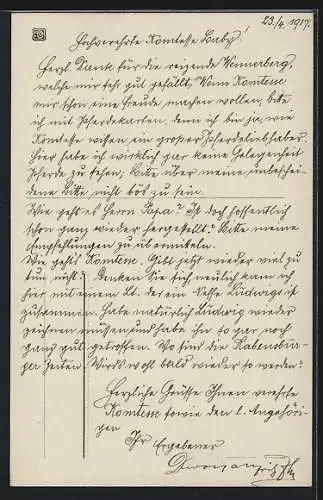 23./4. 1917.
Hochverehrte Komtesse Baby!
Herzl. Dank für die reizende Wennerberg,
welche mir sehr gut gefällt, Wenn Komtesse
mir schon eine Freude machen wollen, bitte
ich mit Pferdekarten, denn ich bin ja, wie
Komtesse wissen ein großer Pferdeliebhaber.
Hier habe ich wirklich gar keine Gelegenheit
Pferde zu sehen, Bitte über meine unbeschei-
dene Bitte nicht bös zu sein.
Wie geht es Herrn Papa? Ist doch hoffentlich
schon ganz wieder hergestellt? Bitte meine
Empfehlungen zu übermitteln.
Wie gehts Komtesse. Gibt jetzt wieder viel zu
tun nicht? Denken Sie sich neulich kam ich
hier mit einem Lt. der ein Neffe Ludwigs ist
zusammen. Habe natürlich Ludwig wieder
zeichnen müssen und habe ihn so gar noch
ganz gut getroffen. Wo sind die Rabensbur-
ger Zeiten. Wirds wohl bald wieder so werden?
Herzliche Grüsse Ihnen verehrte
Komtesse sowie den l. Angehöri-
gen
Ihr Ergebener